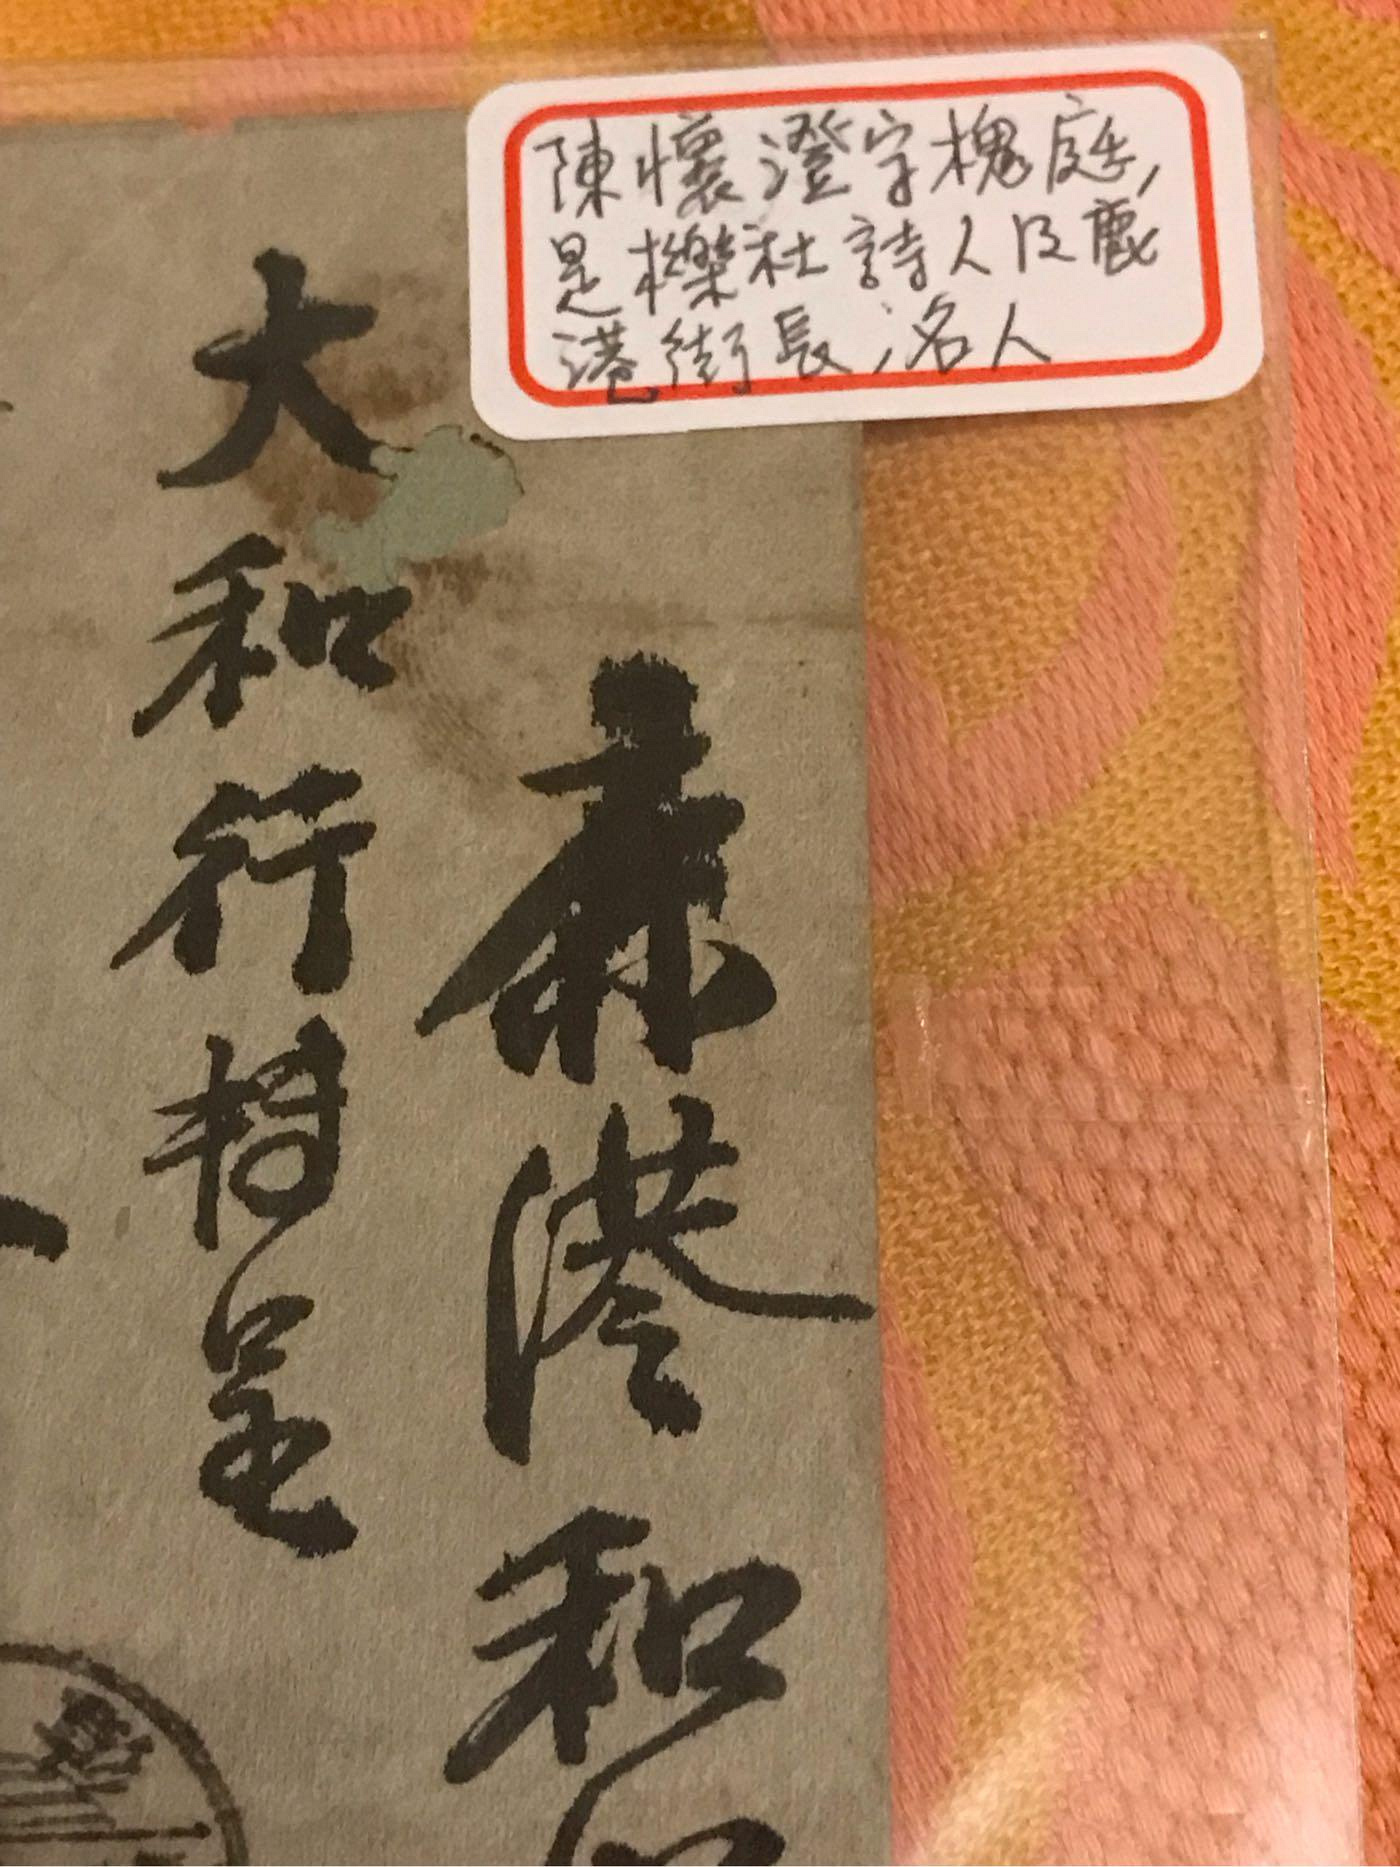 陳懷澄字槐庭,
是櫟社詩人及鹿
港街長,名人
鹿港和
大和行特呈